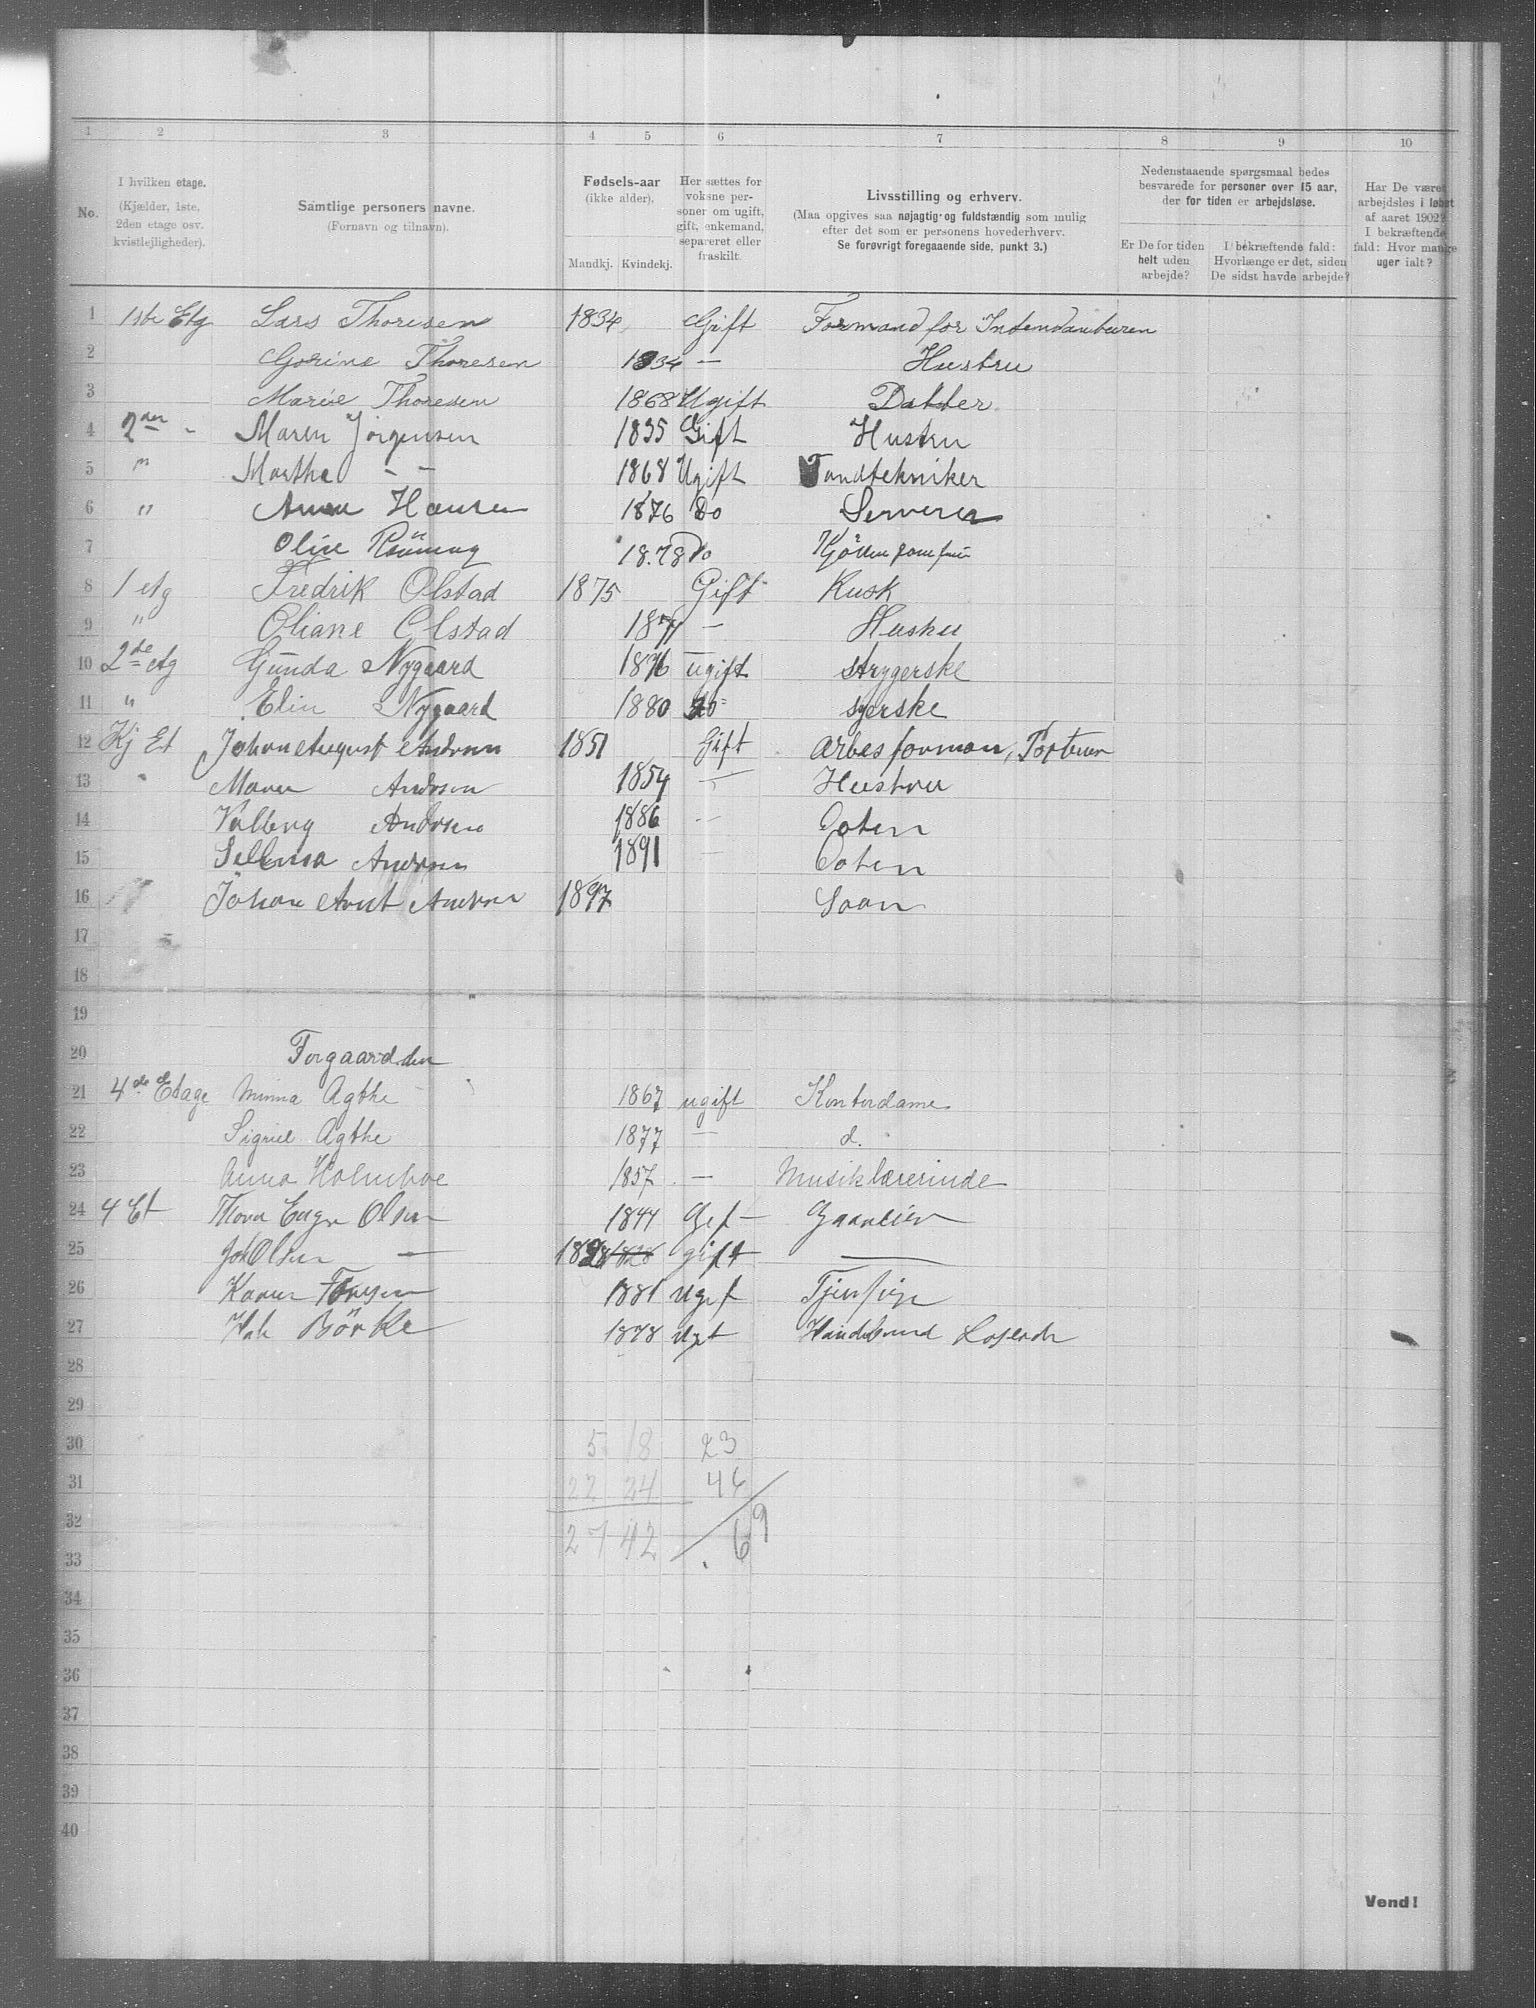 1 2 3 4 5 6 7 8 9 10
No.
I hvilken etage.
(Kjælder, 1ste,
2den etage osv.
kvistlejligheder).
Samtlige personers navne.
(Fornavn og tilnavn).
Fødsels-aar
(ikke alder).
Mandkj. Kvindekj.
Her sættes for
voksne per-
soner om ugift,
gift, enkemand,
separeret eller
fraskilt.
Livsstilling og erhverv.
(Maa opgives saa nøjagtig og fuldstændig som mulig
efter det som er personens hovederhverv.
Se forøvrigt foregaaende side, punkt 3.)
Nedenstaaende spørgsmaal bedes
besvarede for personer over 15 aar,
der for tiden er arbejdsløse.
Er De for tiden
helt uden
arbejde?
I bekræftende fald:
Hvorlænge er det, siden
De sidst havde arbejde?
Har De været
arbejdsløs i løbet
af aaret 1902?
I bekræftende
fald: Hvor mange
uger ialt?
1 1ste Etg Lars Thoresen 1834 Gift Formand for Intendanturen
2 Gorine Thoresen 1834 — Hustru
3 Marie Thoresen 1868 Ugift Datter
4 2den - Maren Jørgensen 1835 Gift Hustru
5 " Marthe - - 1868 Ugift Tandtekniker
6 " Anna Hansen 1876 Do Serverer
7 Oline 1878 Do
8 1 etg Fredrik Olstad 1875 Gift Kusk
9 " Oliane Olstad 1877 — Hustru
10 2de etg Gunda Nygaard 1876 ugift strygerske
11 " Elin Nygaard 1880 do syerske
12 Kj Et Johan August Andersen 1851 Gift
13 " Maren Andersen 1854 — Hustru
14 Valborg Andersen 1886 — Doter
15 Andersen 1891 — Doter
16 Johan Arnt Andersen 1897 Søan
17
18
19
20 Forgaarden
21 4de Etage Minna Agthe 1867 ugift Kontordame
22 Sigrid Agthe 1877 — d.
23 Anna Holmboe 1857 — Musiklærerinde
24 4 Et Thora Olsen 1844 Gif —
25 Joh Olsen — 1828 1828 gift —
26 Karen 1881 Ugif
27 Børke 1878 Ugt
28
29
30 5 18 23
31 22 24 46
32 27 42 69
33
34
35
36
37
38
39
40
Vend!